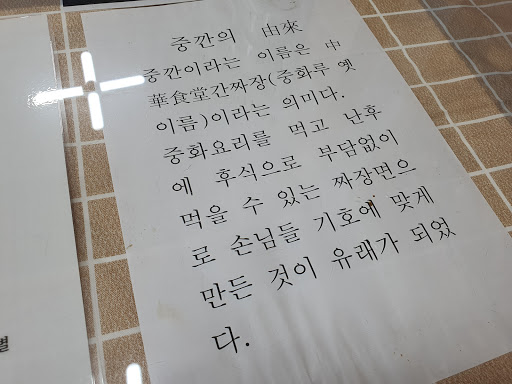 중깐의 由來
중깐이라는 이름은 中
華食堂간짜장(중화루 옛
이름)이라는 의미다.
중화요리를 먹고 난후
에 후식으로 부담없이
먹을 수 있는 짜장면으
로 손님들 기호에 맞게
만든 것이 유래가 되었
다.
별